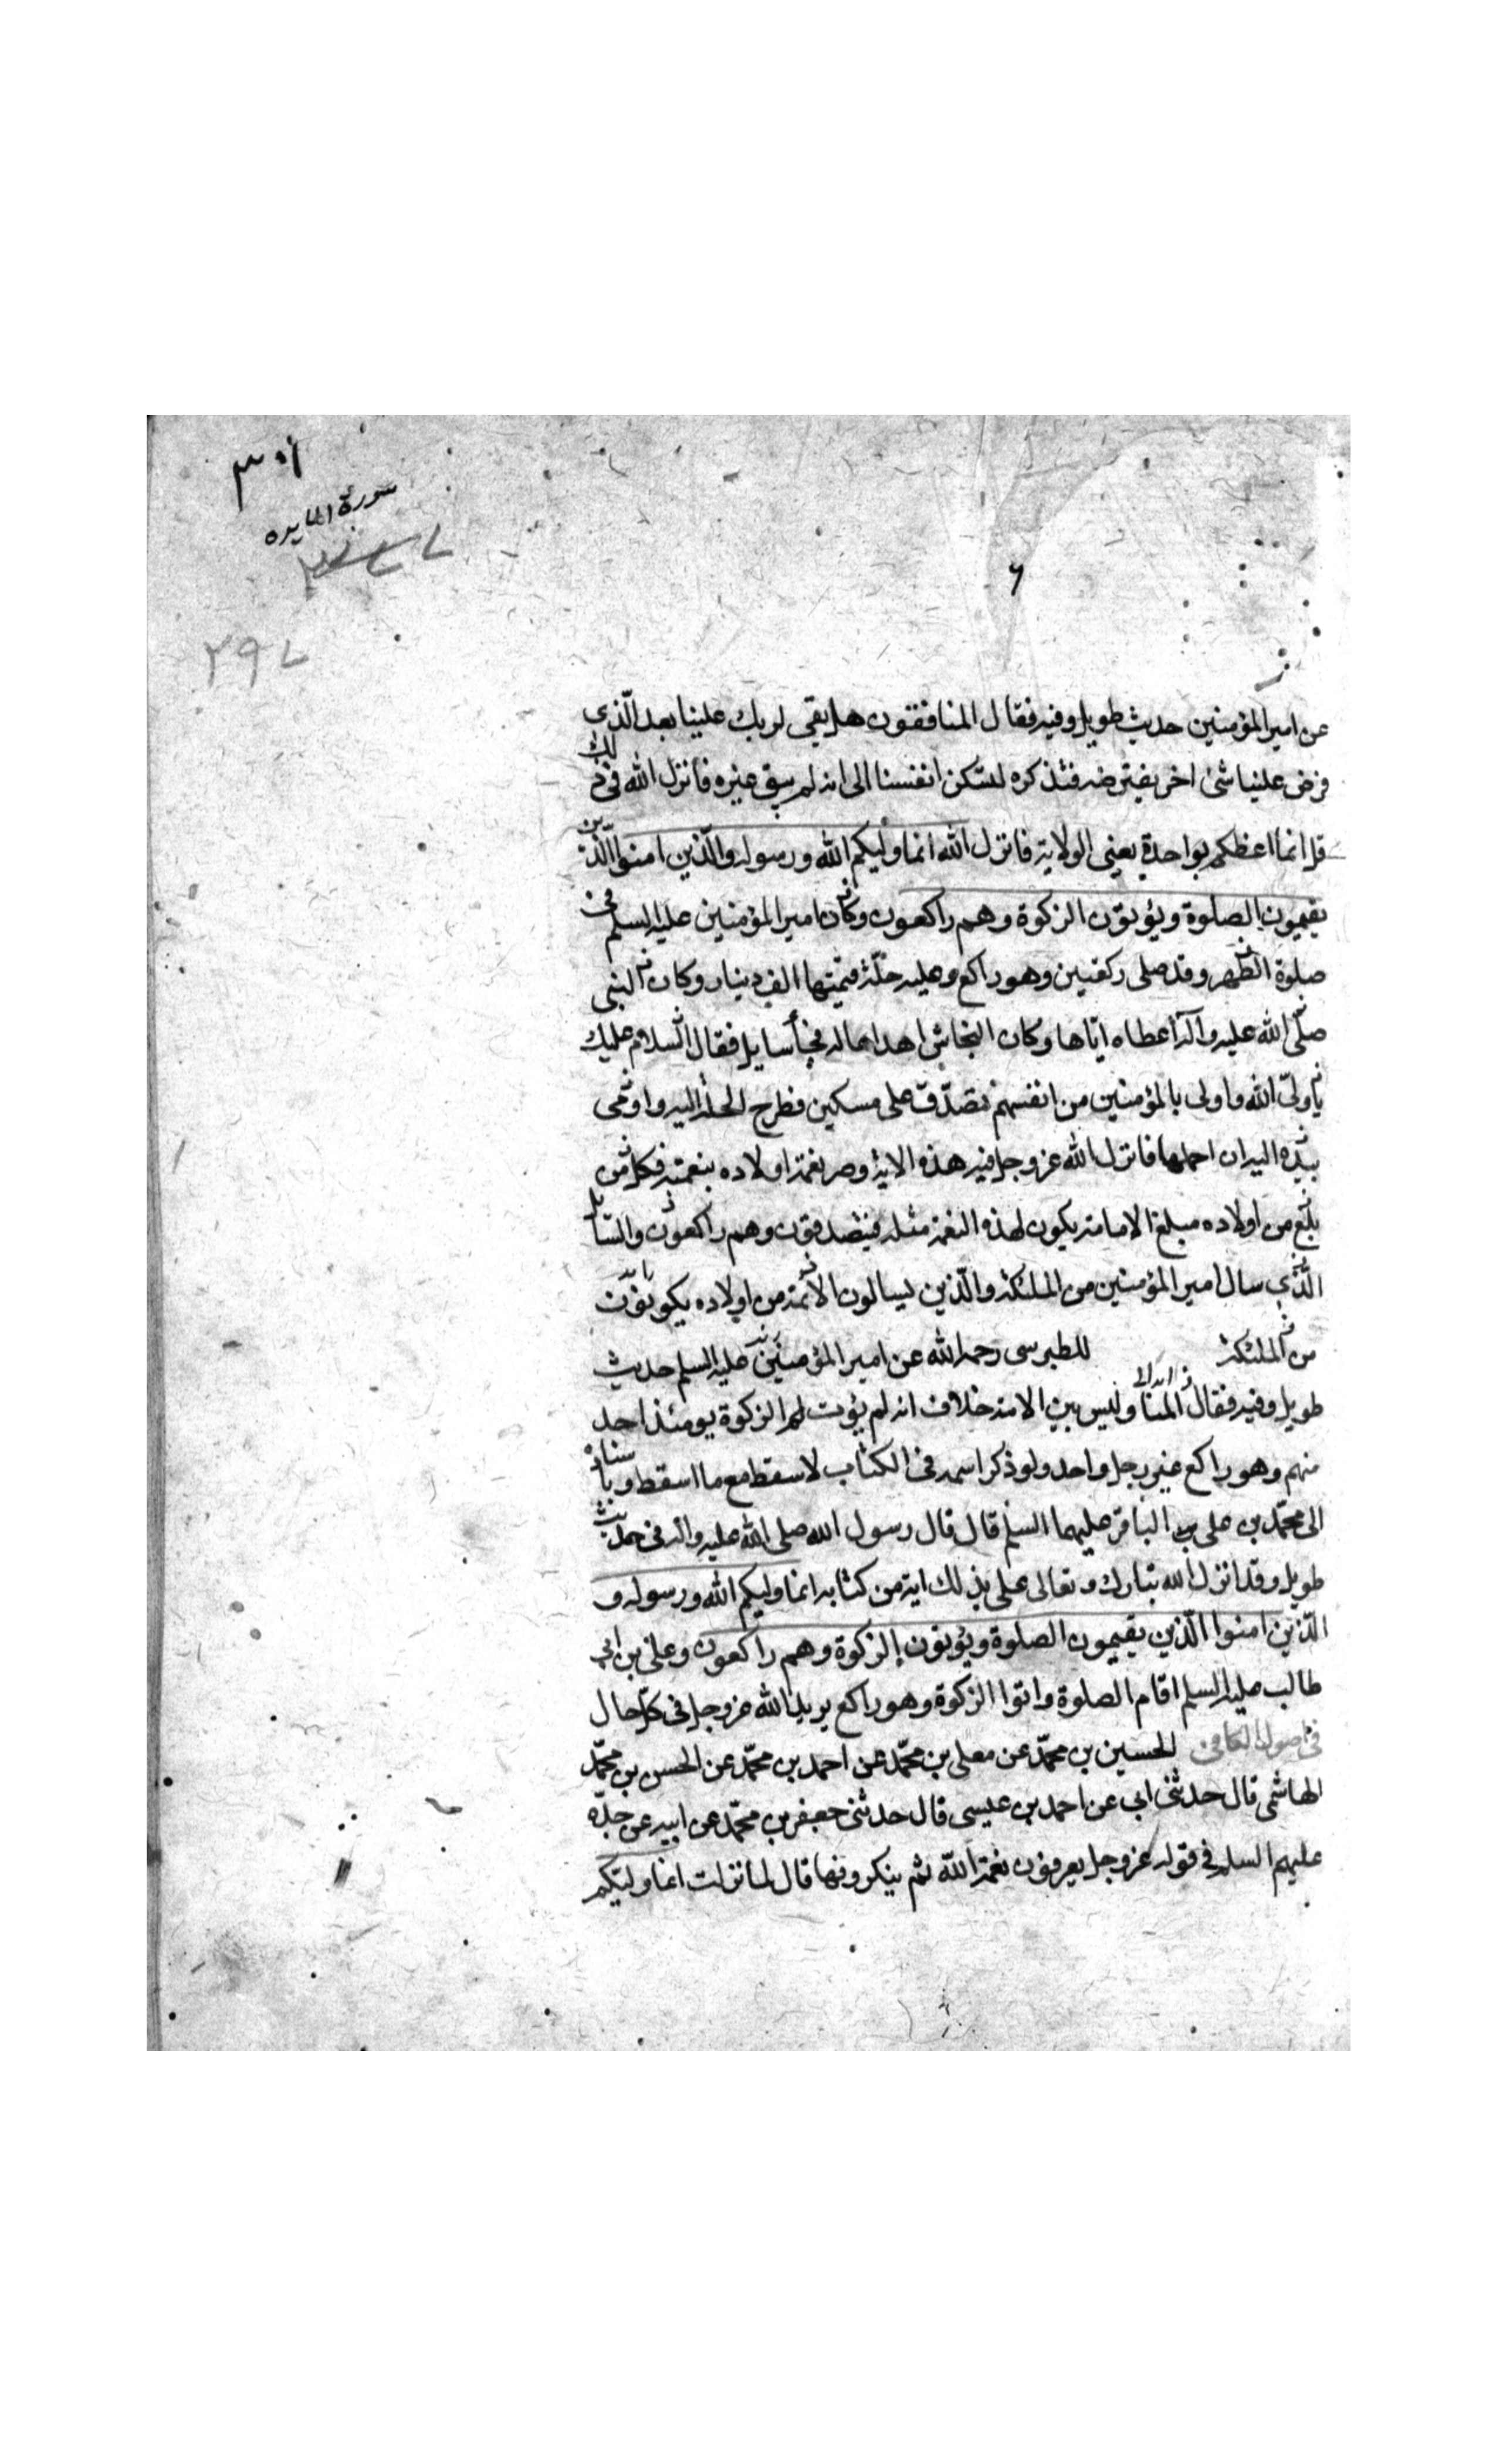 سورة المايده
٢٩٧
٦
عن امير المؤمنين حديث طويل وفيه فقال المنافقون هل بقى لربك علينا بعد الّذى
فرض علينا شئ اخر يفترضه فتذكره لتسكن انفسنا الى انه لم يبق غيره فانزل الله فى ذلك
قل انما اعظكم بواحدة يعنى الولاية فانزل الله انما وليكم الله ورسوله والّذين امنوا الّذين
يقيمون الصلوة ويؤتون الزكوة وهم راكعون وكان امير المؤمنين عليه السلم فى
صلوة الظهر وقد صلى ركعتين وهو راكع وعليه حلّة قيمتها الف دينار وكان النبى
صلّى الله عليه وآله أعطاه ايّاها وكان النجاشى اهداها له فجأ سايل فقال السلام عليك
يا ولىّ الله واولى بالمؤمنين من انفسهم تصدّق على مسكين فطرح الحلّة اليه واومى
بيده اليه ان احملها فانزل الله عز وجل فيه هذه الاية وصر نعمة اولاده بنعمته فكل من
بلغ من اولاده مبلغ الامامة يكون لهذه النعمة مثله فيتصدقون وهم راكعون والسايل
الّذى سال امير المؤمنين من الملئكة والّذين يسالون الائمة من اولاده يكونون
من الملئكة للطبرسى رحمه الله عن امير المؤمنين عليه السلم حديث
طويل وفيه فقال المنا وليس بين الامة خلاف انه لم يؤت الزكوة يومئذ احد
منهم وهو راكع غير رجل واحد ولو ذكر اسمه فى الكتاب لاسقط مع ما اسقط وباسناده
الى محمّد بن على الباقر عليهما السلم قال قال رسول الله صلى الله عليه واله فى حديث
طويل وقد انزل الله تبارك وتعالى على بذلك اية من كتابه انما وليكم الله ورسوله و
الّذين امنوا الّذين يقيمون الصلوة ويؤتون الزكوة وهم راكعون وعلى بن ابى
طالب عليه السلم اقام الصلوة واتوا الزكوة وهو راكع يريد الله عز وجل فى كل حال
فى اصول الكافى الحسين بن محمّد عن معلى بن محمّد عن احمد بن محمّد عن الحسن بن محمّد
الهاشمى قال حدثنى ابى عن احمد بن عيسى قال حدثنى جعفر بن محمّد عن ابيه عن جدّه
عليهم السلم فى قوله عز وجل يعرفون نعمة الله ثم ينكرونها قال لما نزلت انما وليّكم